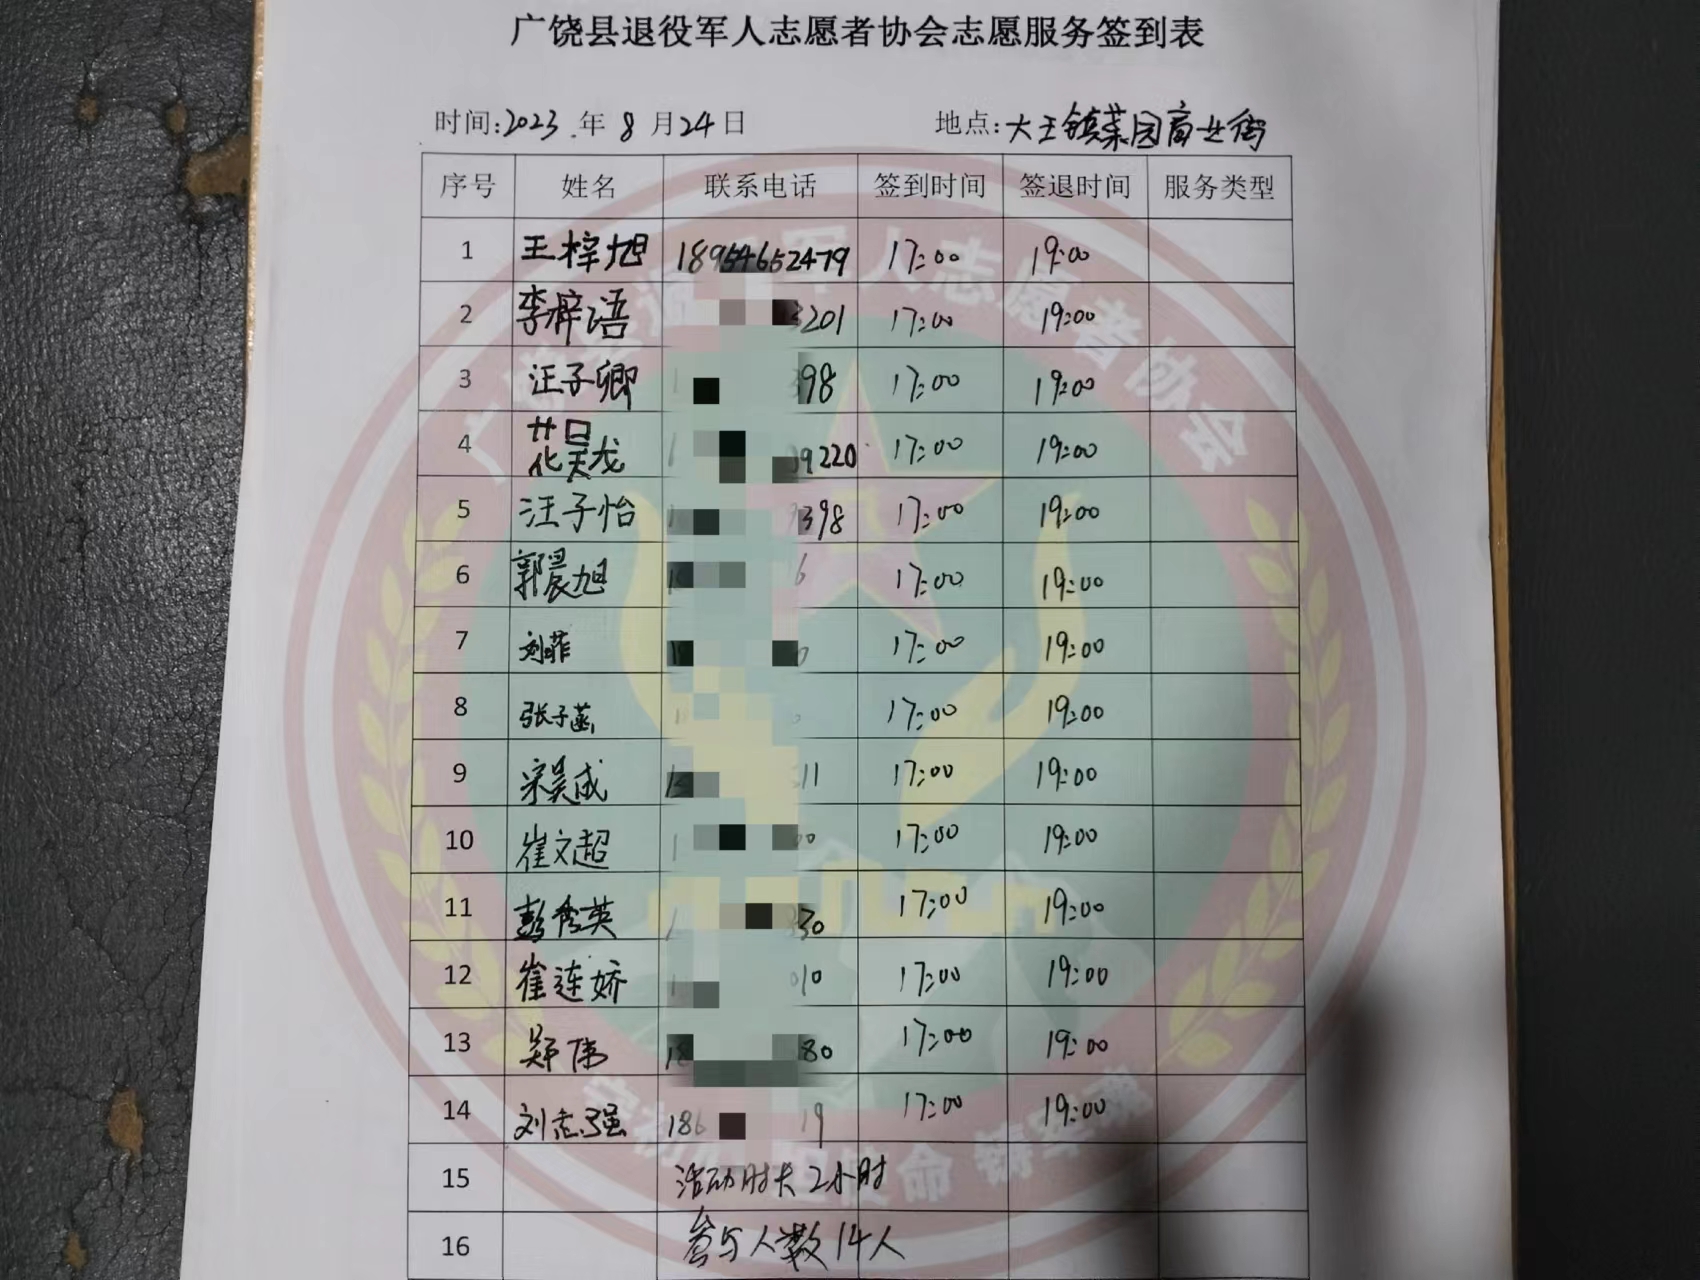 广饶县退役军人志愿者协会志愿服务签到表
时间:2023.年8月24日 地点:大王镇菜园商业街
序号 姓名 联系电话 签到时间 签退时间 服务类型
1 王梓旭 18954652479 17:00 19:00
2 李梓语 3201 17:00 19:00
3 汪子卿 1 398 17:00 19:00
4 花昊龙 1 09220 17:00 19:00
5 汪子怡 1 9398 17:00 19:00
6 郭晨旭 1 6 17:00 19:00
7 刘菲 1 0 17:00 19:00
8 张子菡 17:00 19:00
9 宋昊成 1 11 17:00 19:00
10 崔文超 1 00 17:00 19:00
11 彭秀英 1 330 17:00 19:00
12 崔连娇 1 010 17:00 19:00
13 郑伟 18 80 17:00 19:00
14 刘志强 186 19 17:00 19:00
15 活动时长2小时
16 参与人数14人